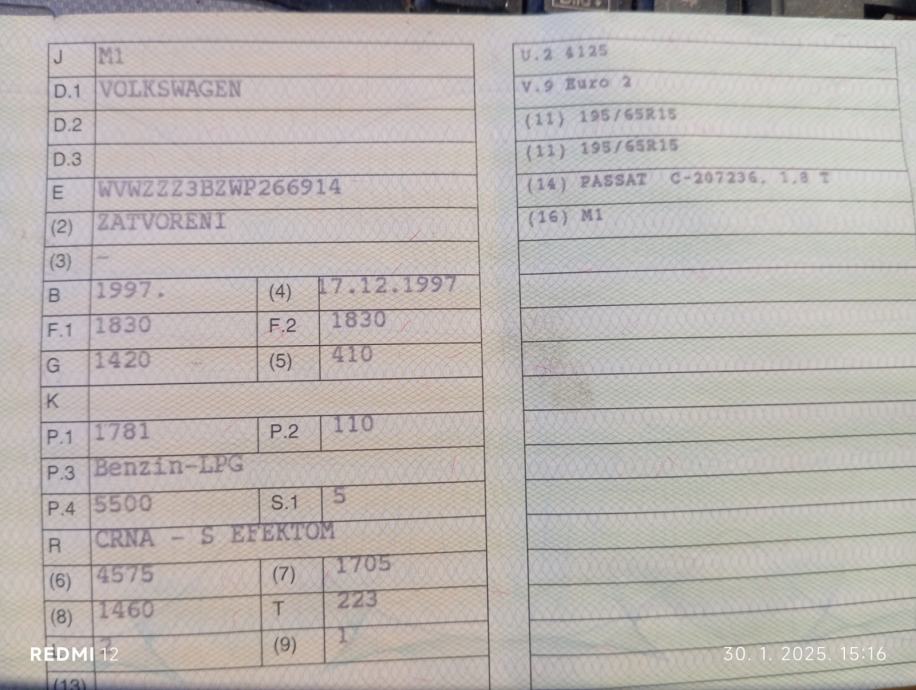 J M1
D.1 VOLKSWAGEN
D.2
D.3
E WVWZZZ3BZWP266914
(2) ZATVORENI
(3) –
B 1997. (4) 17.12.1997
F.1 1830 F.2 1830
G 1420 (5) 410
K
P.1 1781 P.2 110
P.3 Benzin-LPG
P.4 5500 S.1 5
R CRNA - S EFEKTOM
(6) 4575 (7) 1705
(8) 1460 T 223
(9) 1
(13)
U.2 4125
V.9 Euro 2
(11) 195/65R15
(11) 195/65R15
(14) PASSAT C-207236, 1,8 T
(16) M1
REDMI 12
30. 1. 2025. 15:16